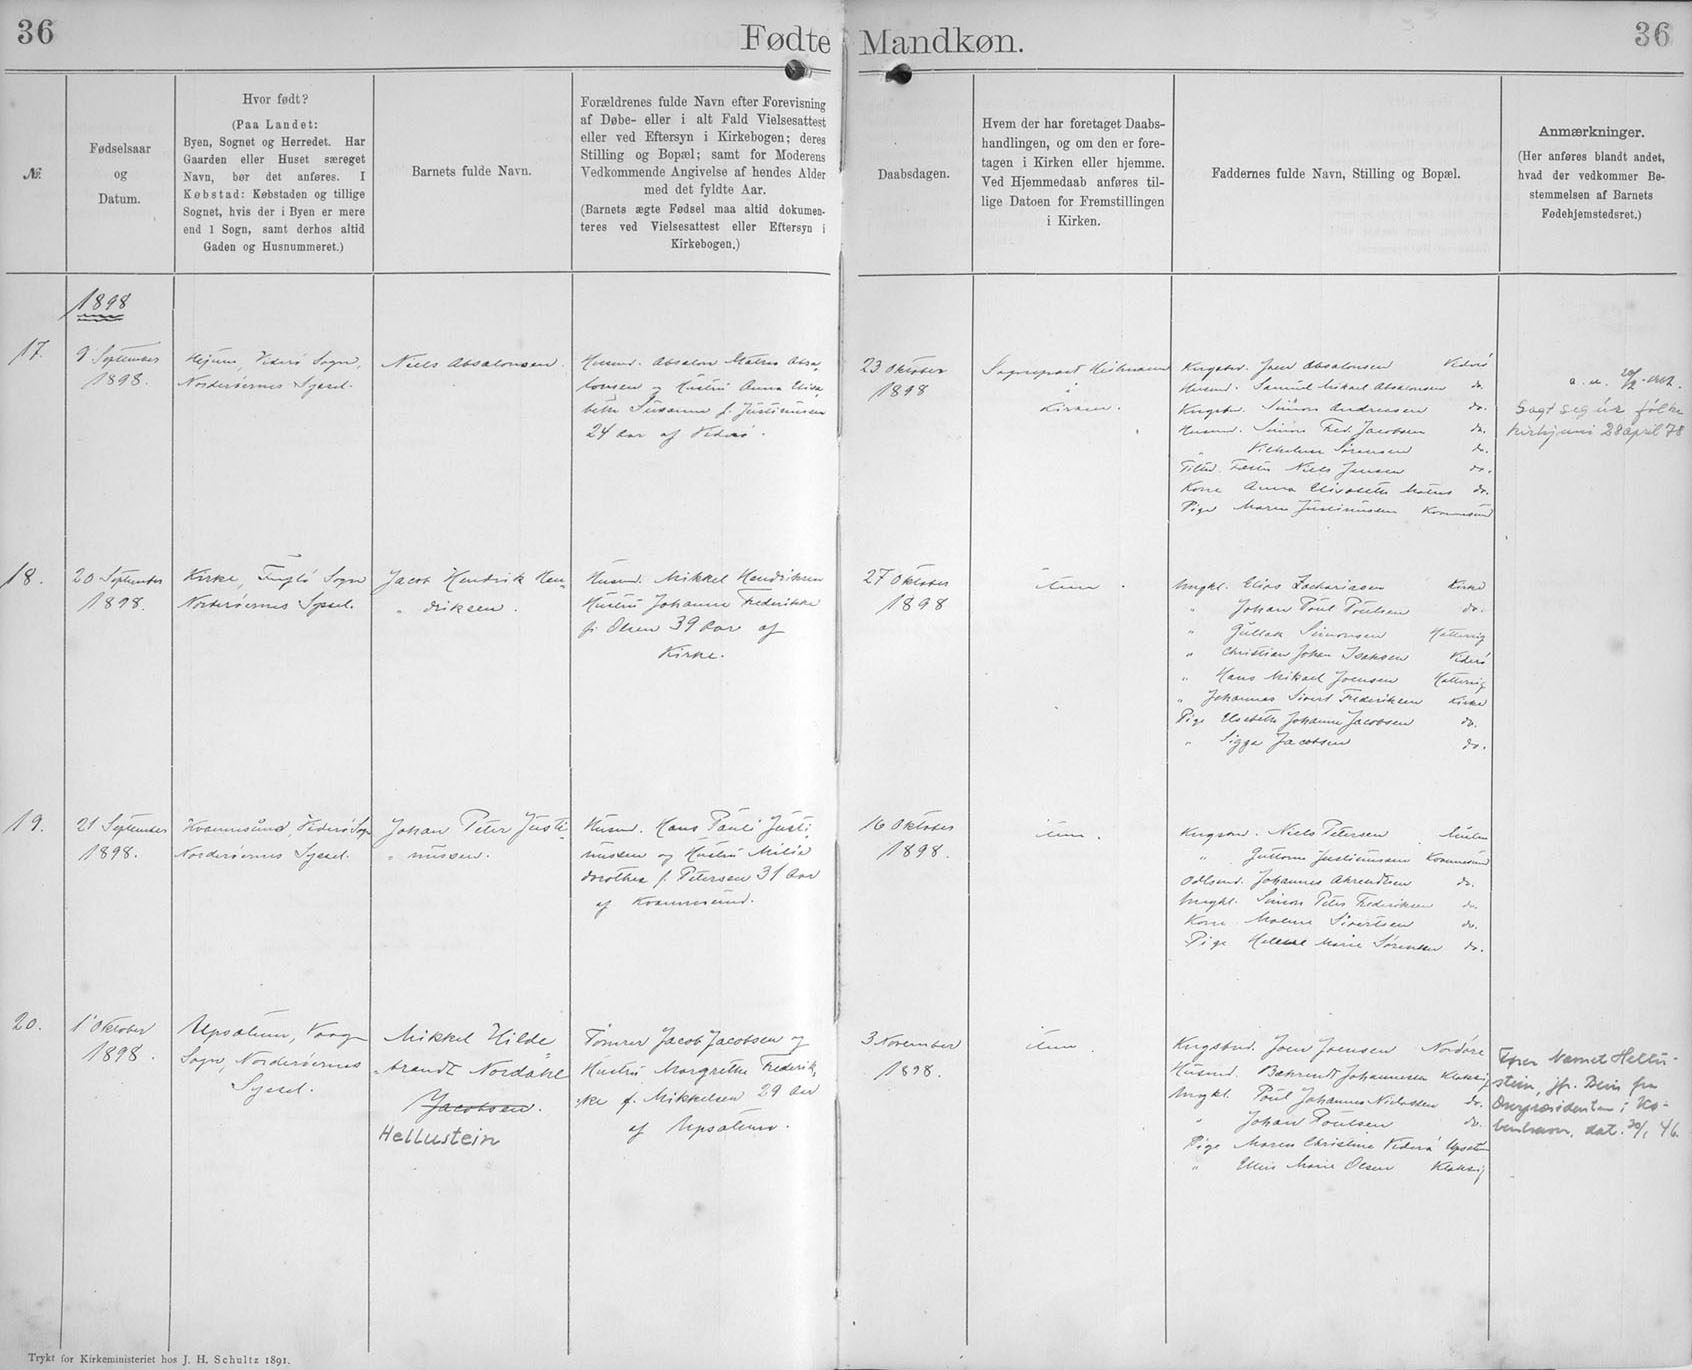 36
Fødte Mandkøn.
36
№.
Fødselsaar
og
Datum.
Hvor født?
(Paa Landet:
Byen, Sognet og Herredet. Har
Gaarden eller Huset særeget
Navn, bør det anføres. I
Købstad: Købstaden og tillige
Sognet, hvis der i Byen er mere
end 1 Sogn, samt derhos altid
Gaden og Husnummeret.)
Barnets fulde Navn.
Forældrenes fulde Navn efter Forevisning
af Døbe- eller i alt Fald Vielsesattest
eller ved Eftersyn i Kirkebogen; deres
Stilling og Bopæl; samt for Moderens
Vedkommende Angivelse af hendes Alder
med det fyldte Aar.
(Barnets ægte Fødsel maa altid dokumen-
teres ved Vielsesattest eller Eftersyn i
Kirkebogen.)
Daabsdagen.
Hvem der har foretaget Daabs-
handlingen, og om den er fore-
tagen i Kirken eller hjemme.
Ved Hjemmedaab anføres til-
lige Datoen for Fremstillingen
i Kirken.
Faddernes fulde Navn, Stilling og Bopæl.
Anmærkninger.
(Her anføres blandt andet,
hvad der vedkommer Be-
stemmelsen af Barnets
Fødehjemstedsret.)
1898
17.
9 September
1898.
Viderø Sogn,
Norderøernes Syssel.
Niels Absalonsen.
Husmd. Absalon Matras Absa-
lonsen og Hustru Anna Elisa-
beth Susanne f. Justinussen
24 Aar af Viderø.
23 Oktober
1898
Sognepræst
i
Kirken.
Kngsbd. Joen Absalonsen Viderø
Husmd. Samuel Mikael Absalonsen do.
Kngsbd. Simon Andreasen do.
Husmd. Simon Fred. Jacobsen do.
" Vilhelm Sørensen do.
Niels Jensen do.
Kone Anna Elisabeth Matras do.
Pige Maren Justinussen Kvannesund
Sagt seg úr fólka
kirkjuni 28 april 78
18.
20 September
1898.
Kirke, Fuglø Sogn
Norderøernes Syssel.
Jacob Hendrik Hen-
driksen.
Husmd. Mikkel Hendriksen
Hustru Johanne Frederikke
f. Olsen 39 Aar af
Kirke.
27 Oktober
1898
item.
Ungkl. Elias Zachariasen Kirke
" Johan Poul Poulsen do.
" Gullak Simonsen Hattervig
" Christian Johan Isaksen Viderø
" Hans Mikael Joensen Hattervig
" Johannes Sivert Frederiksen Kirke
Pige Elsebeth Johanne Jacobsen do.
" Sigga Jacobsen do.
19.
21 September
1898.
Kvannesund, Viderø Sogn
Norderøernes Syssel.
Johan Peter Justi-
nussen.
Husmd. Hans Pauli Justi-
nussen og Hustru Milia
Dorothea f. Petersen 31 Aar
af Kvannesund.
16 Oktober
1898.
item.
Kngsbd. Niels Petersen
" Guttorm Justinussen Kvannesund
Odlsmd. Johannes Ahrendtsen do.
Ungkl. Simon Peter Frederiksen do.
Kone Malene Sivertsen do.
Pige Helene Marie Sørensen do.
20.
1 Oktober
1898.
Upsalum, Vaag
Sogn, Norderøernes
Syssel.
Mikkel Hilde-
brandt Nordahl
Jacobsen.
Hellustein
Tømrer Jacob Jacobsen og
Hustru Margrethe Frederik-
ke f. Mikkelsen 29 Aar
af Upsalum.
3 November
1898.
item.
Kngsbd. Joen Joensen Nordøre
Husmd. Behrendt Johannesen Klaksvig
Ungkl. Poul Johannes Niclassen do.
" Johan Poulsen do.
Pige Maren Christine Viderø Upsalum
" Ellen Marie Olsen Klaksvig
Fører Navnet Hellu-
stein, jfr. Bevis fra
Overpræsidenten i Kø-
benhavn, dat. 30/1 46.
Trykt for Kirkeministeriet hos J. H. Schultz 1891.